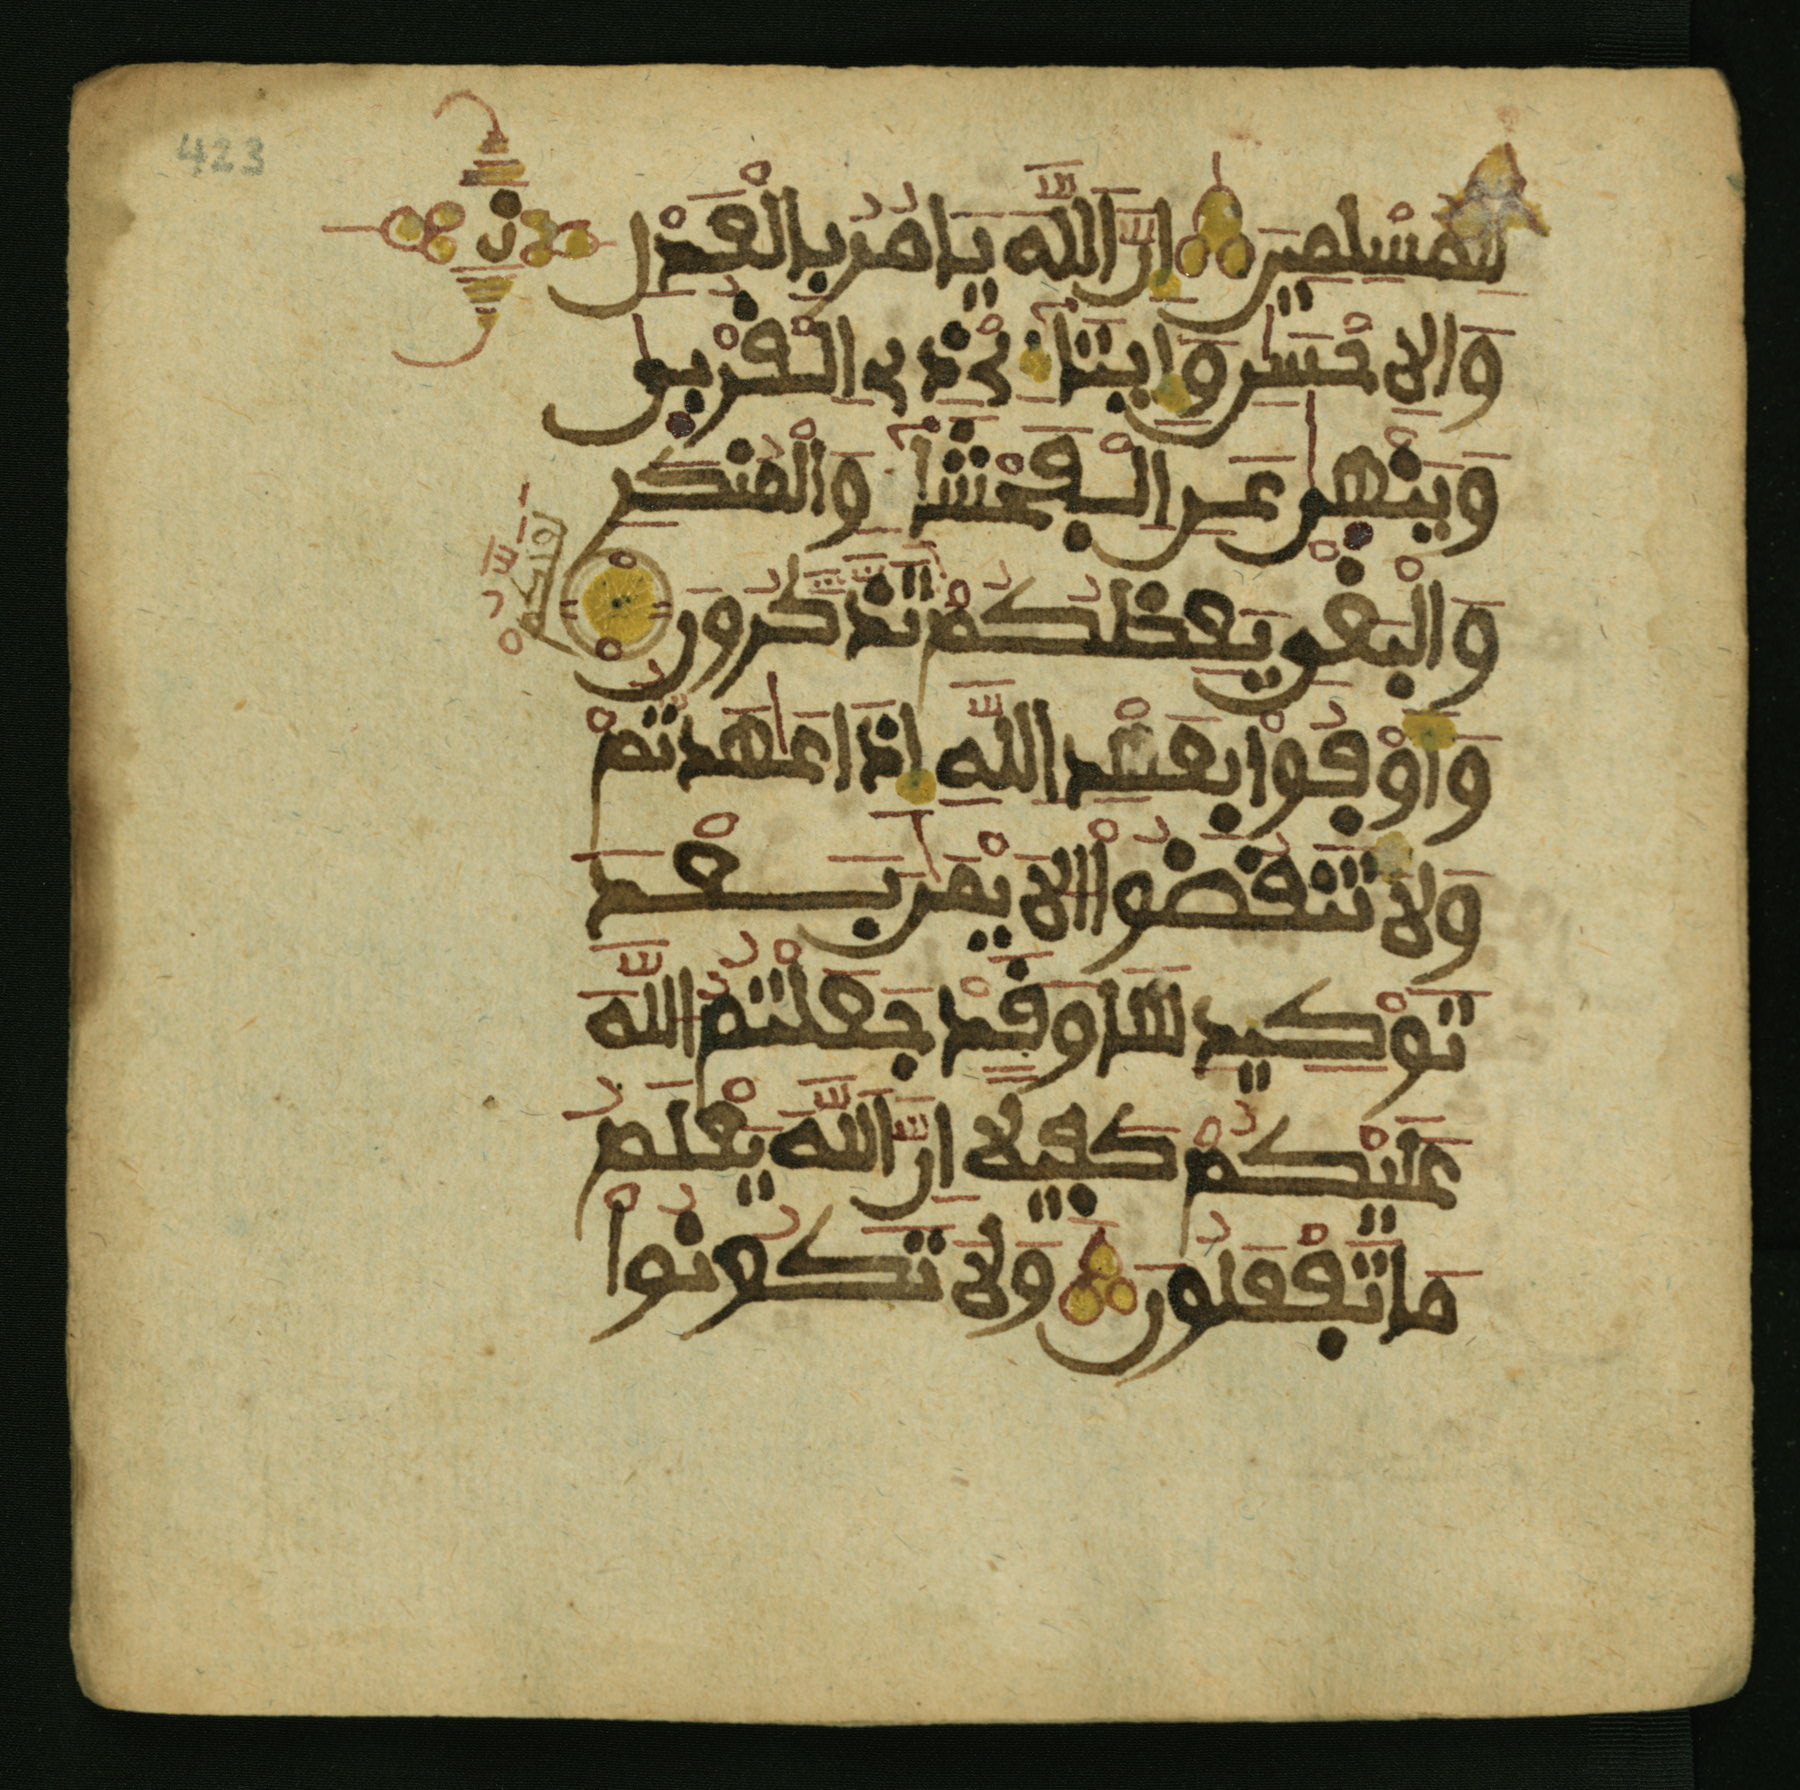 423
للمسلمين ان الله يامر بالعدل
ن
والاحسن وايتاء ذى القربى
وينهى عن الفحشاء والمنكر
والبغى يعظكم لعلكم تذكرون
واوفوا بعهد الله اذا عهدتم
ولا تنقضوا الايمن بعد
توكيدها وقد جعلتم الله
عليكم كفيلا ان الله يعلم
ما تفعلون ولا تكونوا